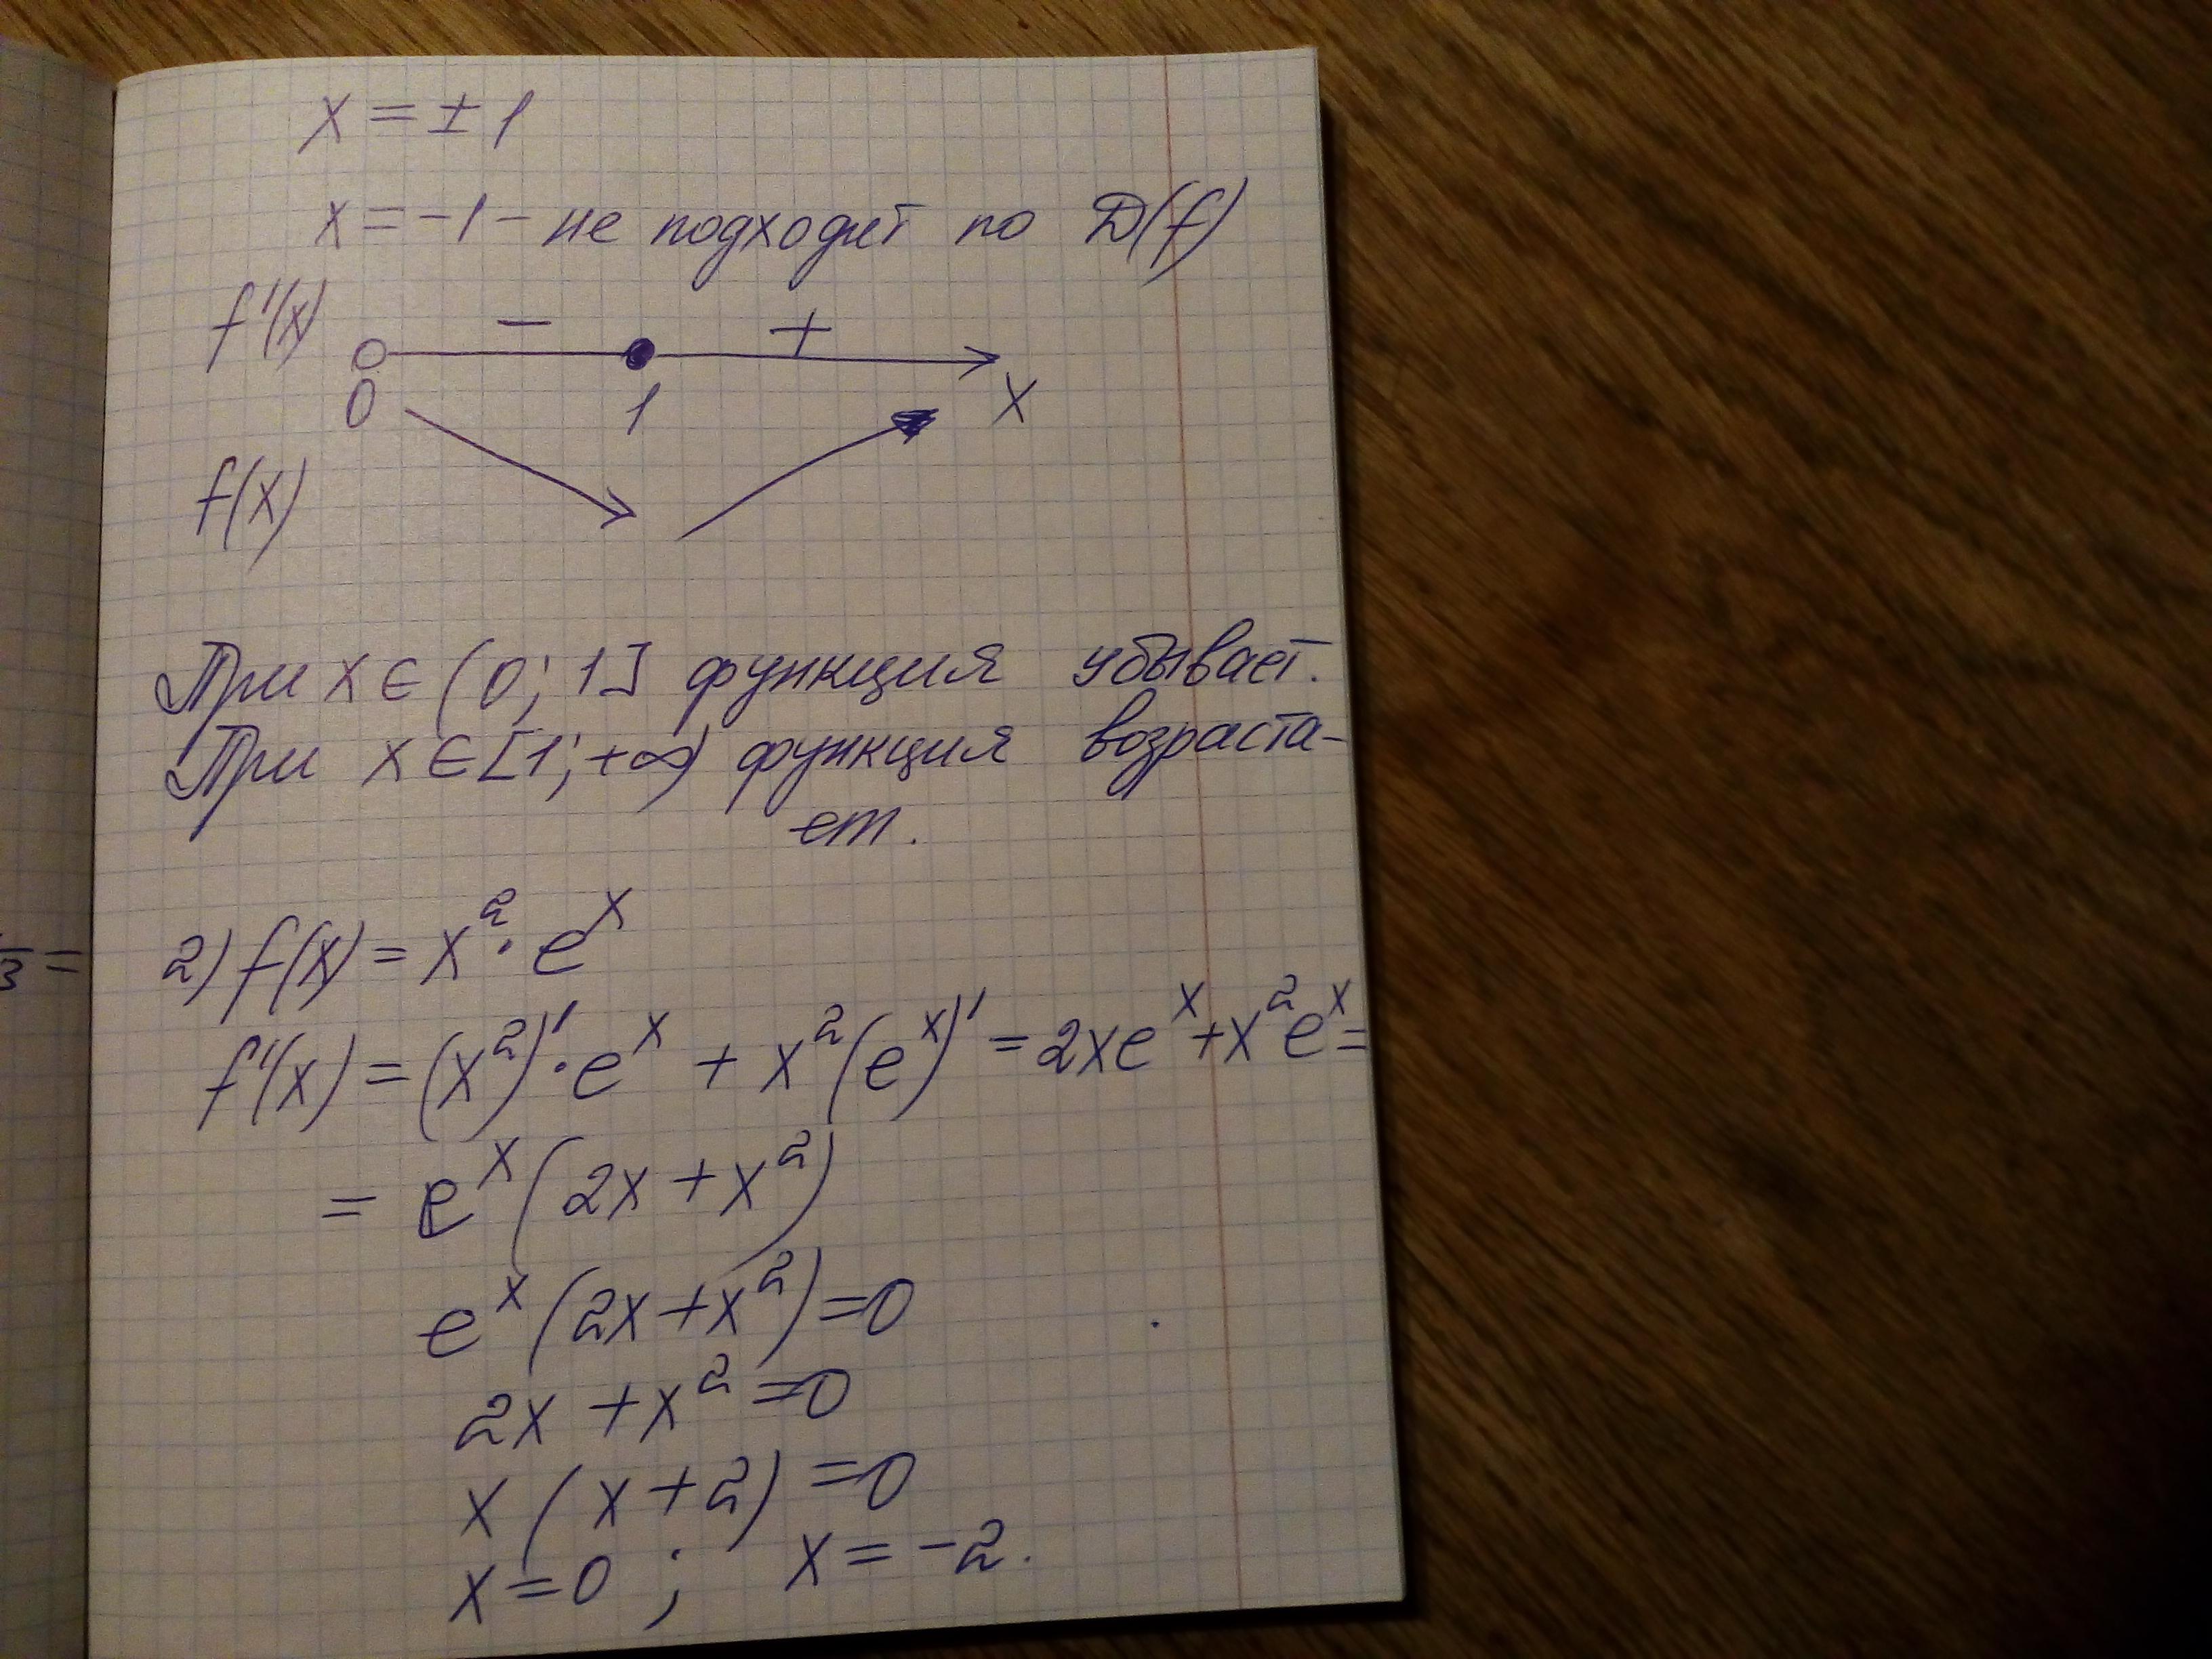 x = ± 1
x = -1 - не подходит по D(f)
f'(x) - +
0 1 x
f(x)
При x ∈ (0; 1] функция убывает.
При x ∈ [1; +∞) функция возраста-
ет.
3 =
2) f(x) = x² · eˣ
f'(x) = (x²)' · eˣ + x² (eˣ)' = 2xeˣ + x²eˣ =
= eˣ (2x + x²)
eˣ (2x + x²) = 0
2x + x² = 0
x (x + 2) = 0
x = 0 ; x = -2.